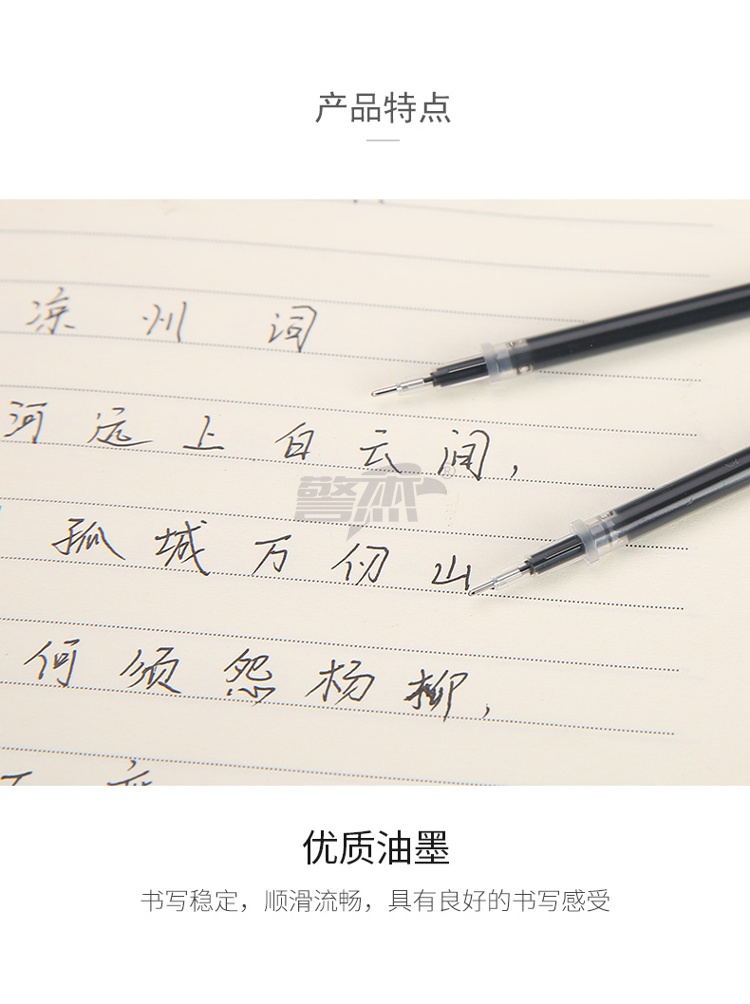 产品特点
凉州词
河远上白云间,
警杰®
孤城万仞山
何须怨杨柳,
优质油墨
书写稳定，顺滑流畅，具有良好的书写感受